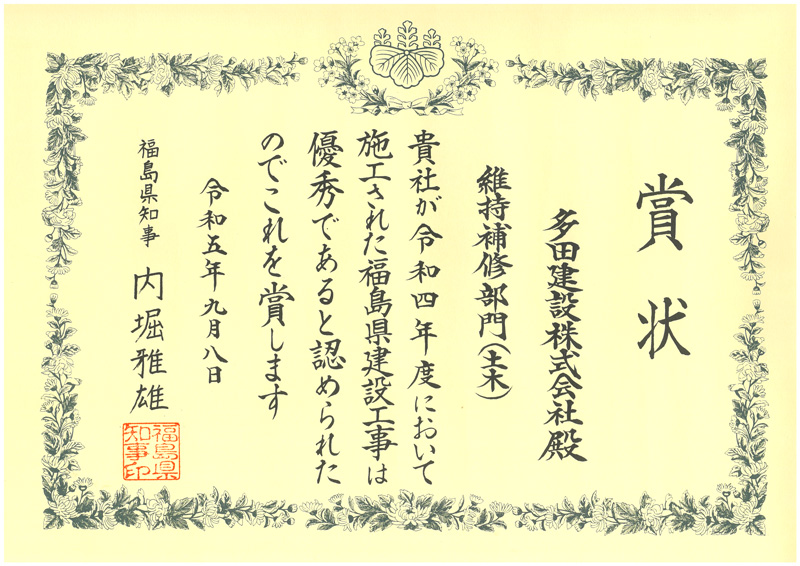 賞状
多田建設株式会社殿
維持補修部門(土木)
貴社が令和四年度において
施工された福島県建設工事は
優秀であると認められた
のでこれを賞します
令和五年九月八日
福島県知事 内堀雅雄
福島県
知事印